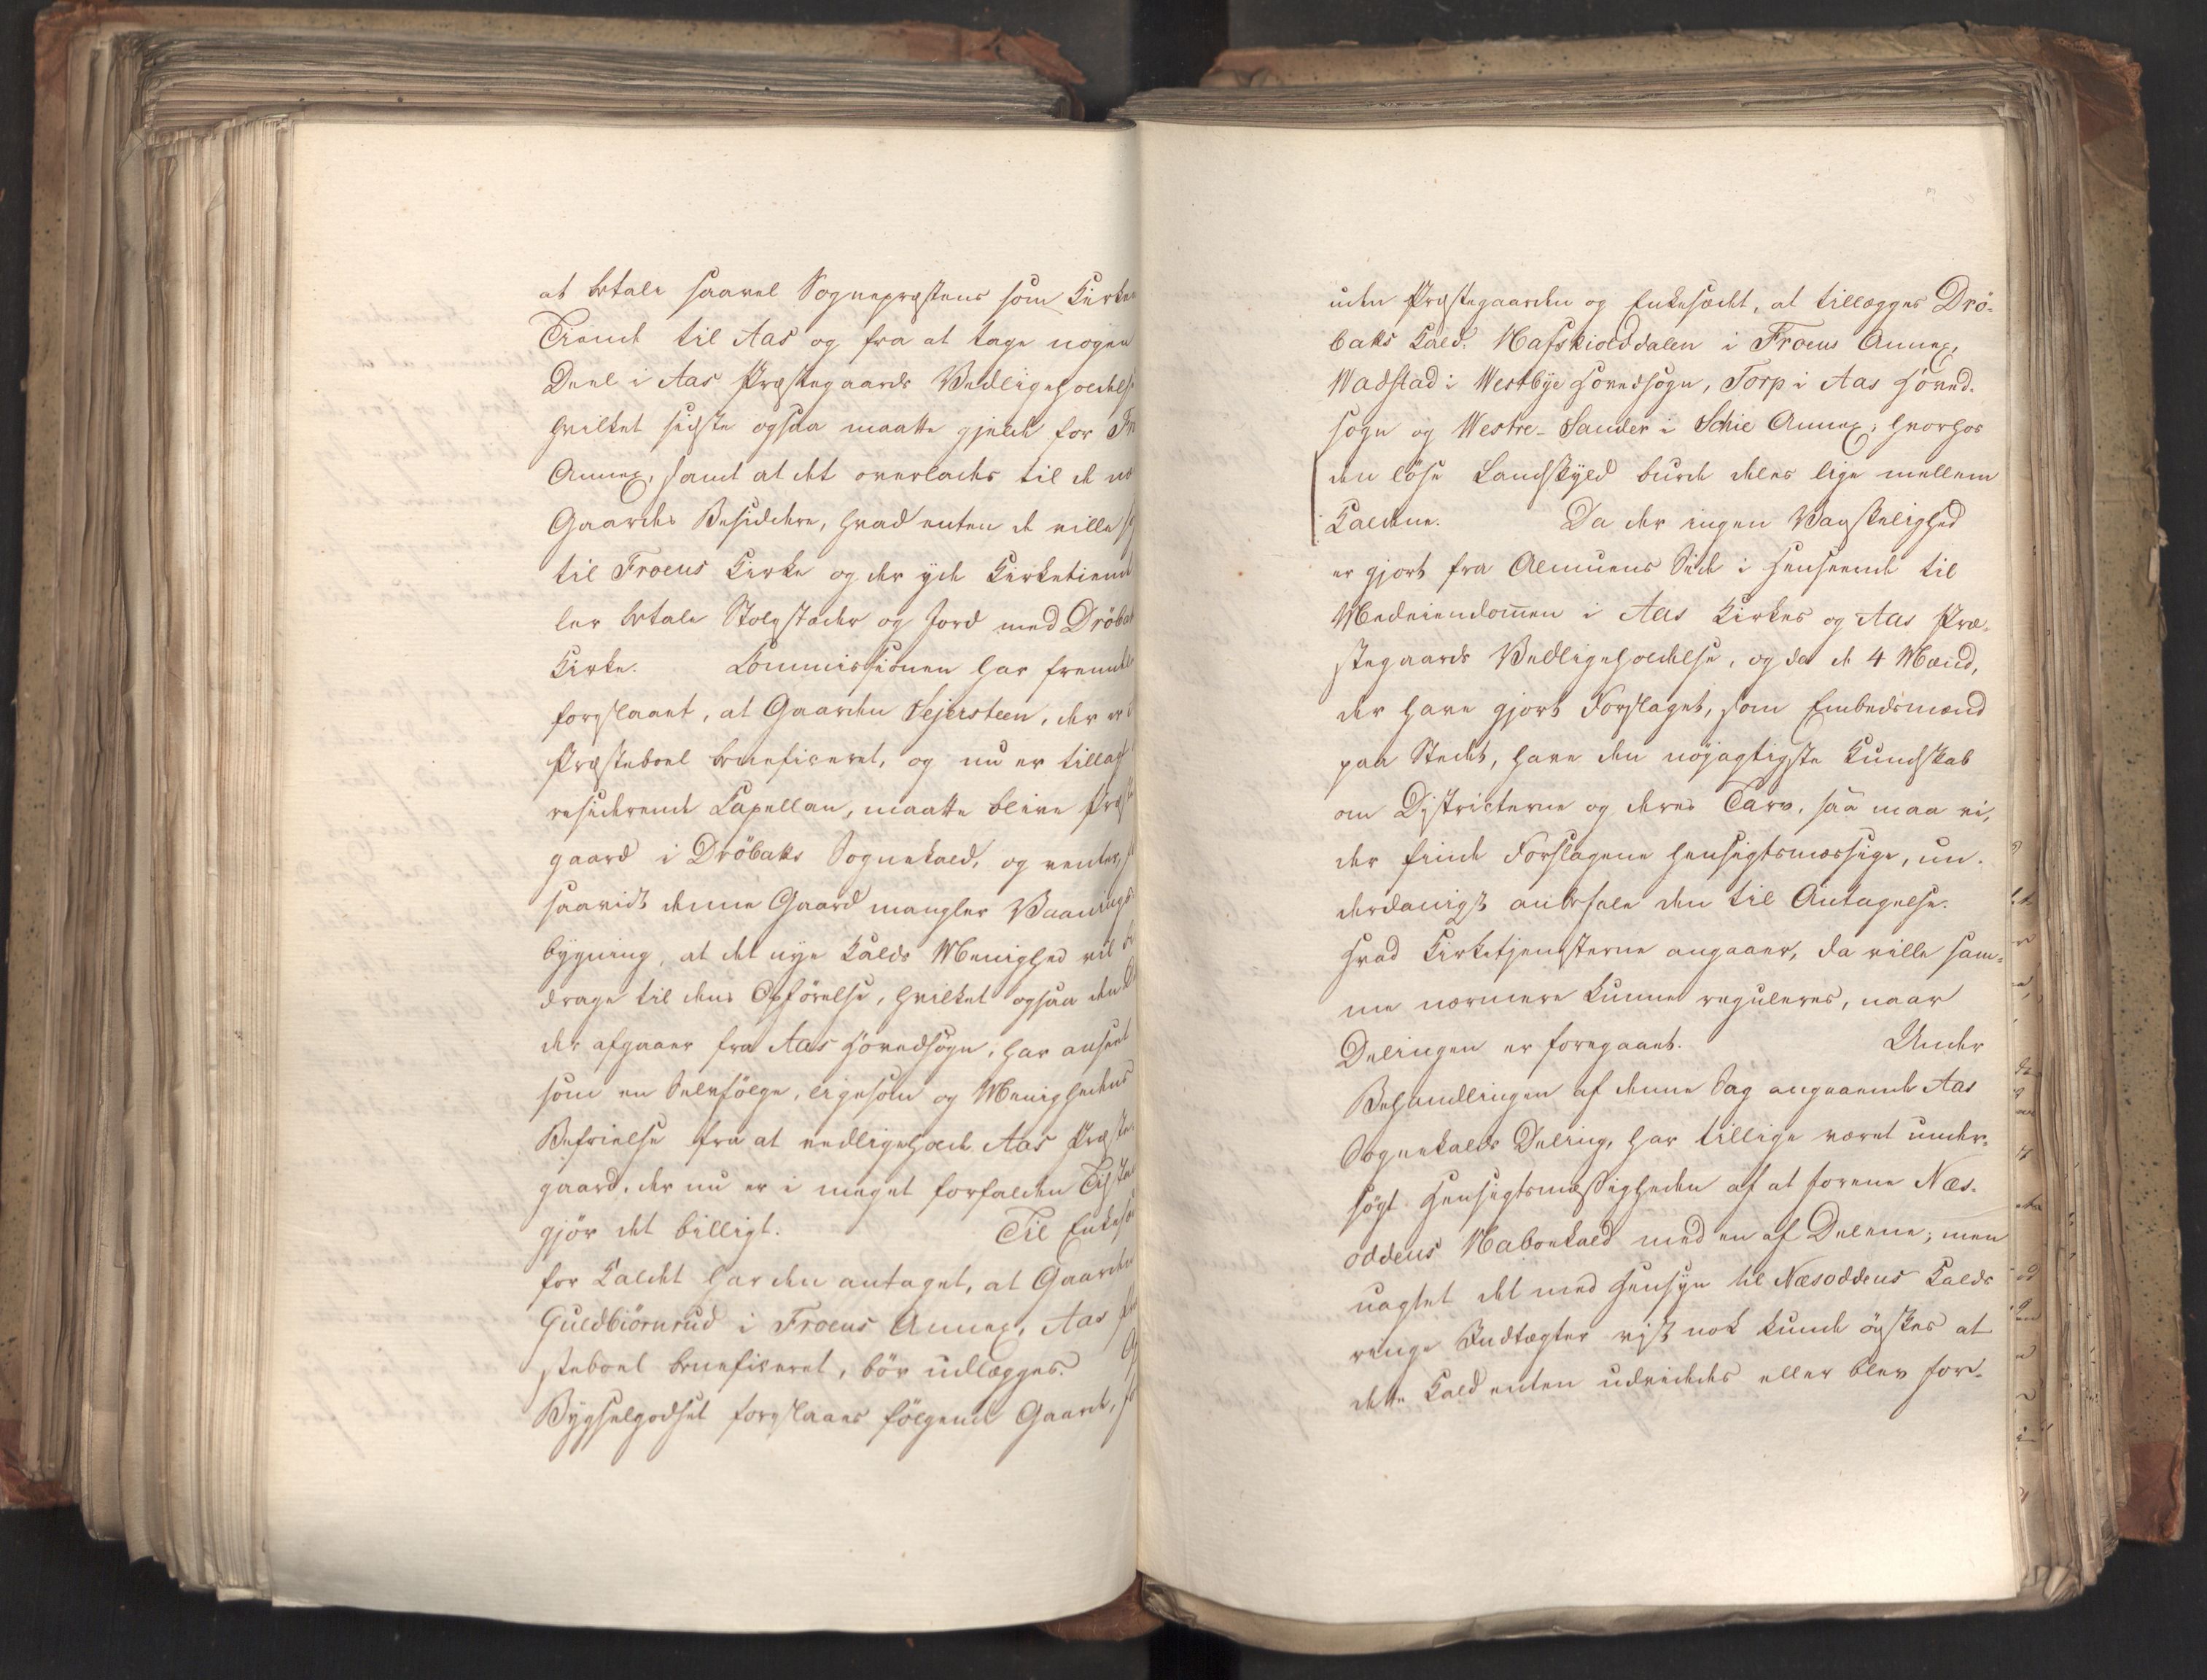 at betale saavel Sognepræstens som Kirken
Tiende til Aas og fra at tage nogen
Deel i Aas Præstegaards Vedligeholdelse
hvilket sidste ogsaa maatte gjelde for Fr
Annex, samt at det overlades til de
Gaardes Besiddere, hvad enten de ville
til Froens Kirke og der yde Kirketiend
ler betale Stolestader og Jord med Dröba
Kirke. Commissionen har fremde
forslaaet, at Gaarden Sejersteen, der er
Præsteboel beneficeret, og nu er tillagt
residerende Capellan, maatte blive Præ
gaard i Dröbaks Sognekald, og venter,
saavidt denne Gaard mangler Vaanings
bygning, at det nye Kalds Menighed vil
drage til dens Opförelse, hvilket ogsaa den
der afgaaer fra Aas Hovedsogn, har anseet
som en Selvfölge, ligesom og Menighedens
Befrielse fra at vedligeholde Aas Præste
gaard, der nu er i meget forfalden Tilsta
gjör det billigt. Til Enkesæ
for Kaldet har den antaget, at Gaarden
Guldbiörnrud i Froens Annex, Aas
steboel beneficeret, bör udlægges.
Bygselgodset forslaaes fölgende Gaarde,
uden Præstegaarden og Enkesædet, at tillægges Drö-
baks Kald: Hafskiolddalen i Froens Annex,
Wadstad i Westbye Hovedsogn, Torp i Aas Hoved-
sogn og Westre-Sander i Schie Annex; hvorhos
den löse Landskyld burde deles lige mellem
Kaldene. Da der ingen Vanskelighed
er gjort fra Almuens Side i Henseende til
Medeiendomen i Aas Kirkes og Aas Præ-
stegaards Vedligeholdelse, og da de 4 Mænd,
der have gjort Forslaget, som Embedsmænd
paa Stedet, have den nöjagtigste Kundskab
om Districterne og deres Tarv, saa maa vi,
der finde Forslagene hensigtsmæssige, un-
derdanigst anbefale den til Antagelse.
Hvad Kirketjenesterne angaaer, da ville sam-
me nærmere kunne reguleres, naar
Delingen er foregaaet. Under
Behandlingen af denne Sag angaaende Aas
Sognekalds Deling, har tillige været under-
sögt Hensigtsmæssigheden af at forene Næs-
oddens Naboekald med en af Delene; men
uagtet det med Hensyn til Næsoddens Kalds
ringe Indtægter vist nok kunde önskes at
dette Kald enten udvidedes eller blev for-